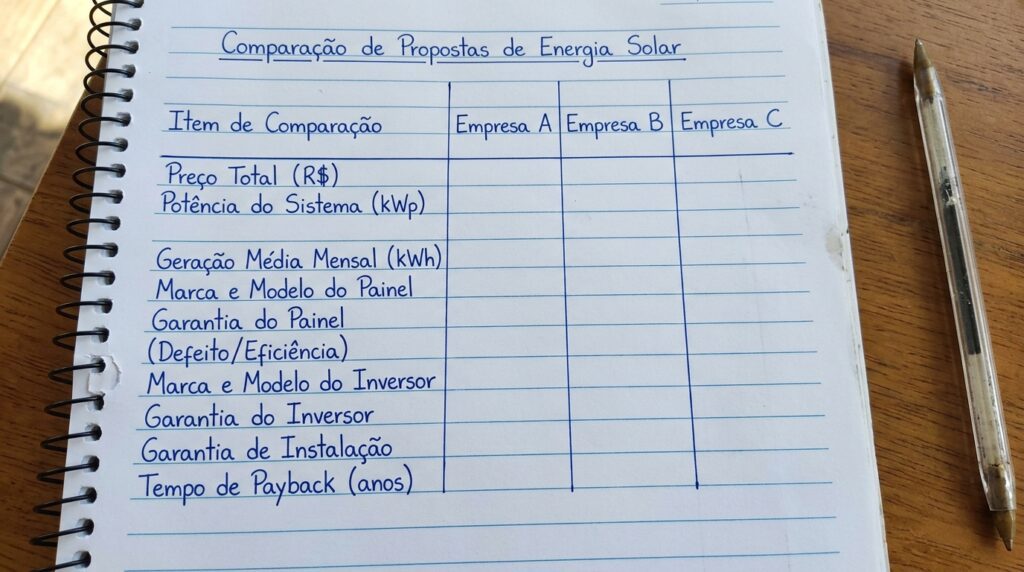 Comparação de Propostas de Energia Solar
Item de Comparação Empresa A Empresa B Empresa C
Preço Total (R$)
Potência do Sistema (kWp)
Geração Média Mensal (kWh)
Marca e Modelo do Painel
Garantia do Painel
(Defeito/Eficiência)
Marca e Modelo do Inversor
Garantia do Inversor
Garantia de Instalação
Tempo de Payback (anos)